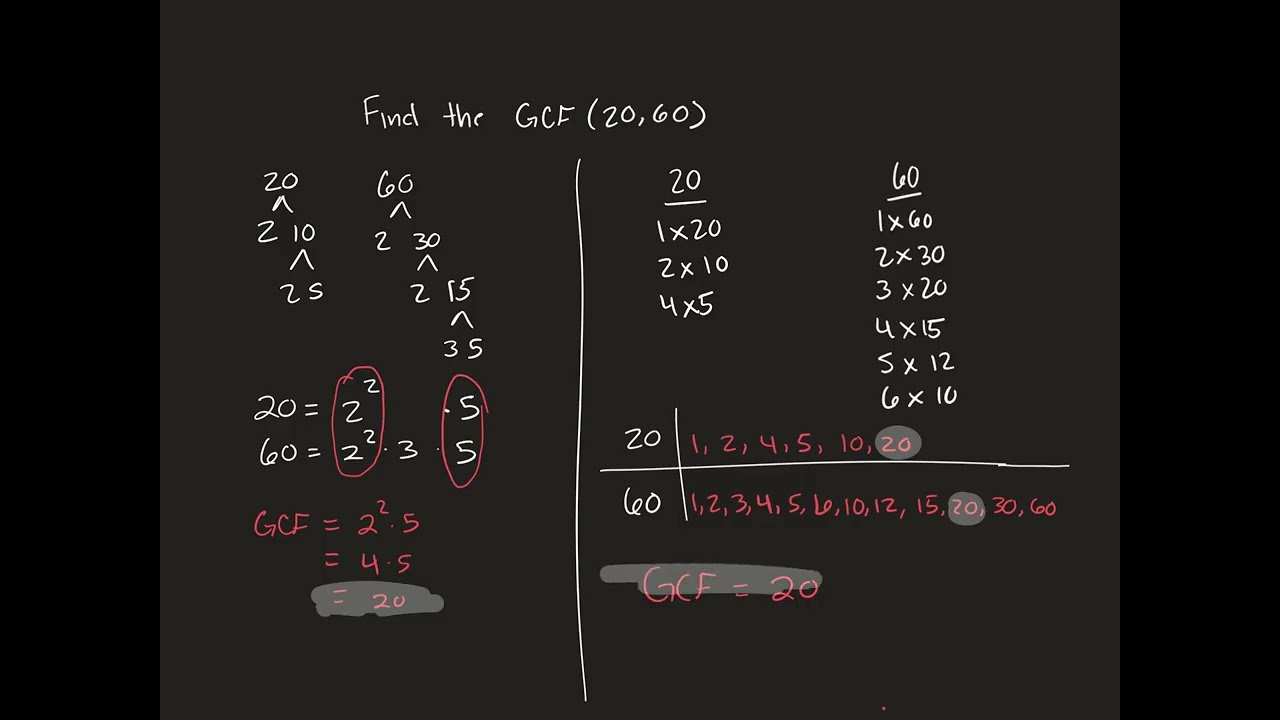 Find the GCF (20, 60)
20
2 10
2 5
60
2 30
2 15
3 5
20 = 2² · 5
60 = 2² · 3 · 5
GCF = 2² · 5
= 4 · 5
= 20
20
1 x 20
2 x 10
4 x 5
60
1 x 60
2 x 30
3 x 20
4 x 15
5 x 12
6 x 10
20 1, 2, 4, 5, 10, 20
60 1, 2, 3, 4, 5, 6, 10, 12, 15, 20, 30, 60
GCF = 20